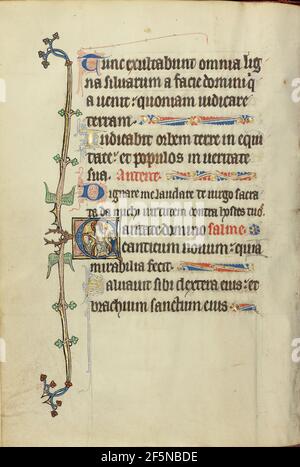 Tunc exultabunt omnia lig
na silvarum a facie domini q
a venit: quoniam iudicare
terram.
Iudicabit orbem terre in equi
tate: et populos in veritate
sua. Antene
Dignare me laudare te virgo sacra
ta da michi virtutem contra hostes tuos
Cantate domino salme
canticum novum: quia
mirabilia fecit.
Salvavit sibi dextera eius: et
brachium sanctum eius
alamy
Image ID: 2F5NBDE
www.alamy.com